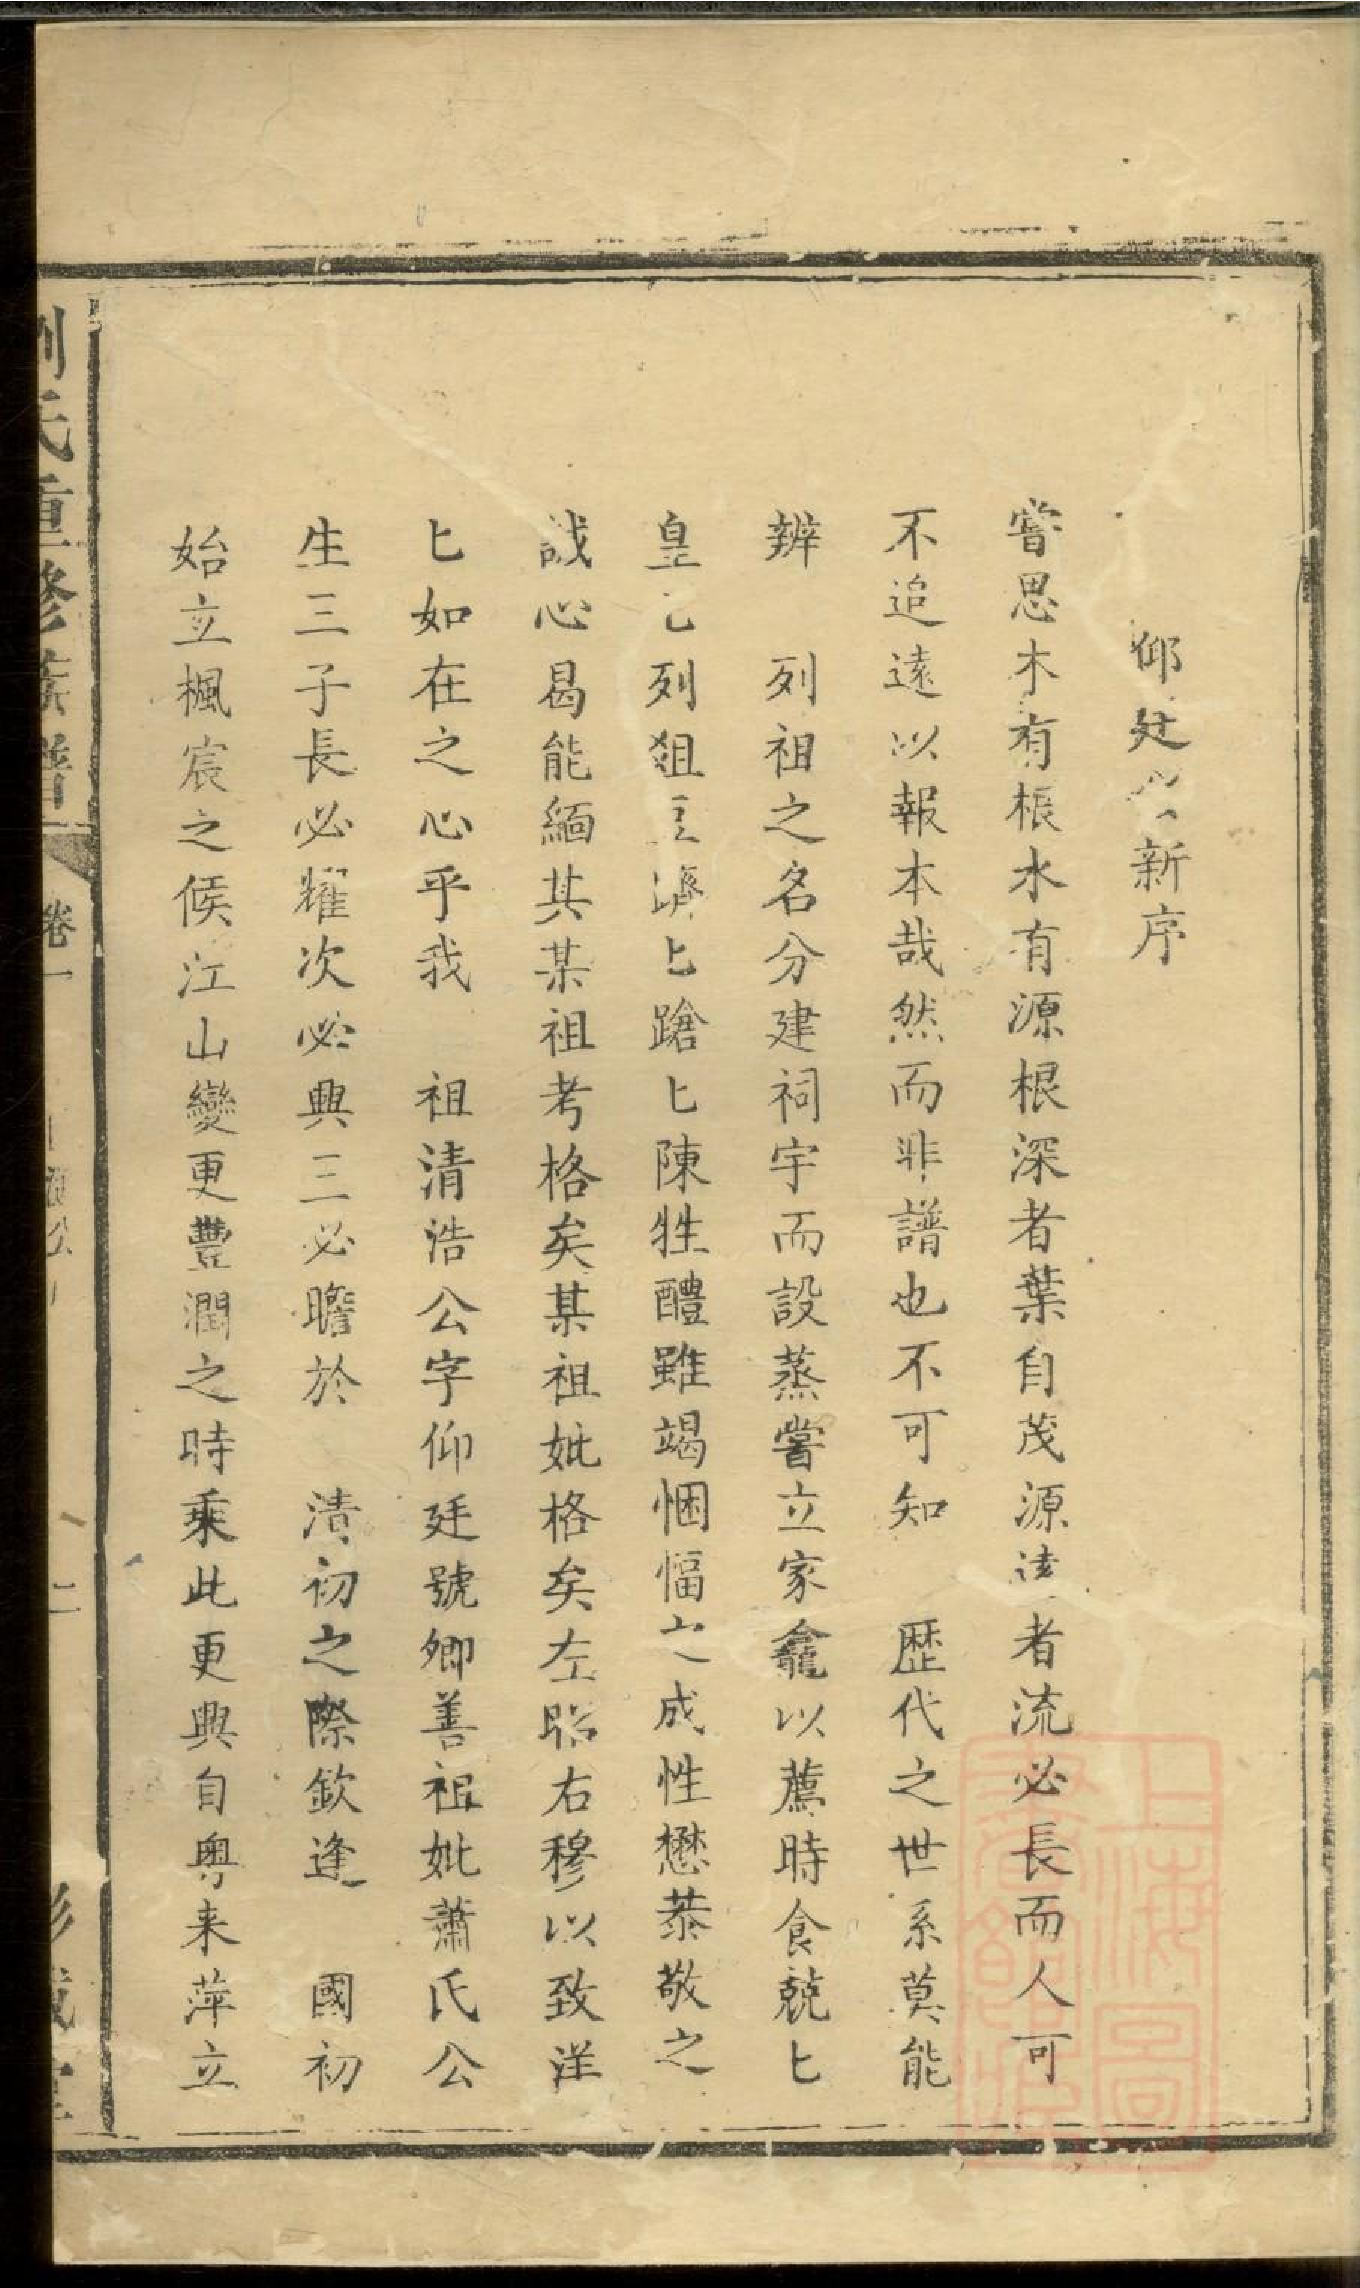 仰廷公新序
嘗思木有根水有源根深者葉自茂源遠者流必長而人可
不追遠以報本哉然而非譜也不可知　歷代之世系莫能
辨　列祖之名分建祠宇而設蒸嘗立家龕以薦時食兢匕
皇匕列爼豆濟匕蹌匕陳牲醴雖竭悃愊之成性懋恭敬之
誠心曷能緬其某祖考格矣某祖妣格矣左昭右穆以致洋
匕如在之心乎我　祖清浩公字仰廷號卿善祖妣蕭氏公
生三子長必耀次必興三必瞻於　清初之際欽逢　國初
始立楓宸之候江山變更豐潤之時乘此更興自粵来萍立
劉氏重修族譜
卷一
公
二
彭城堂
上海圖書館藏